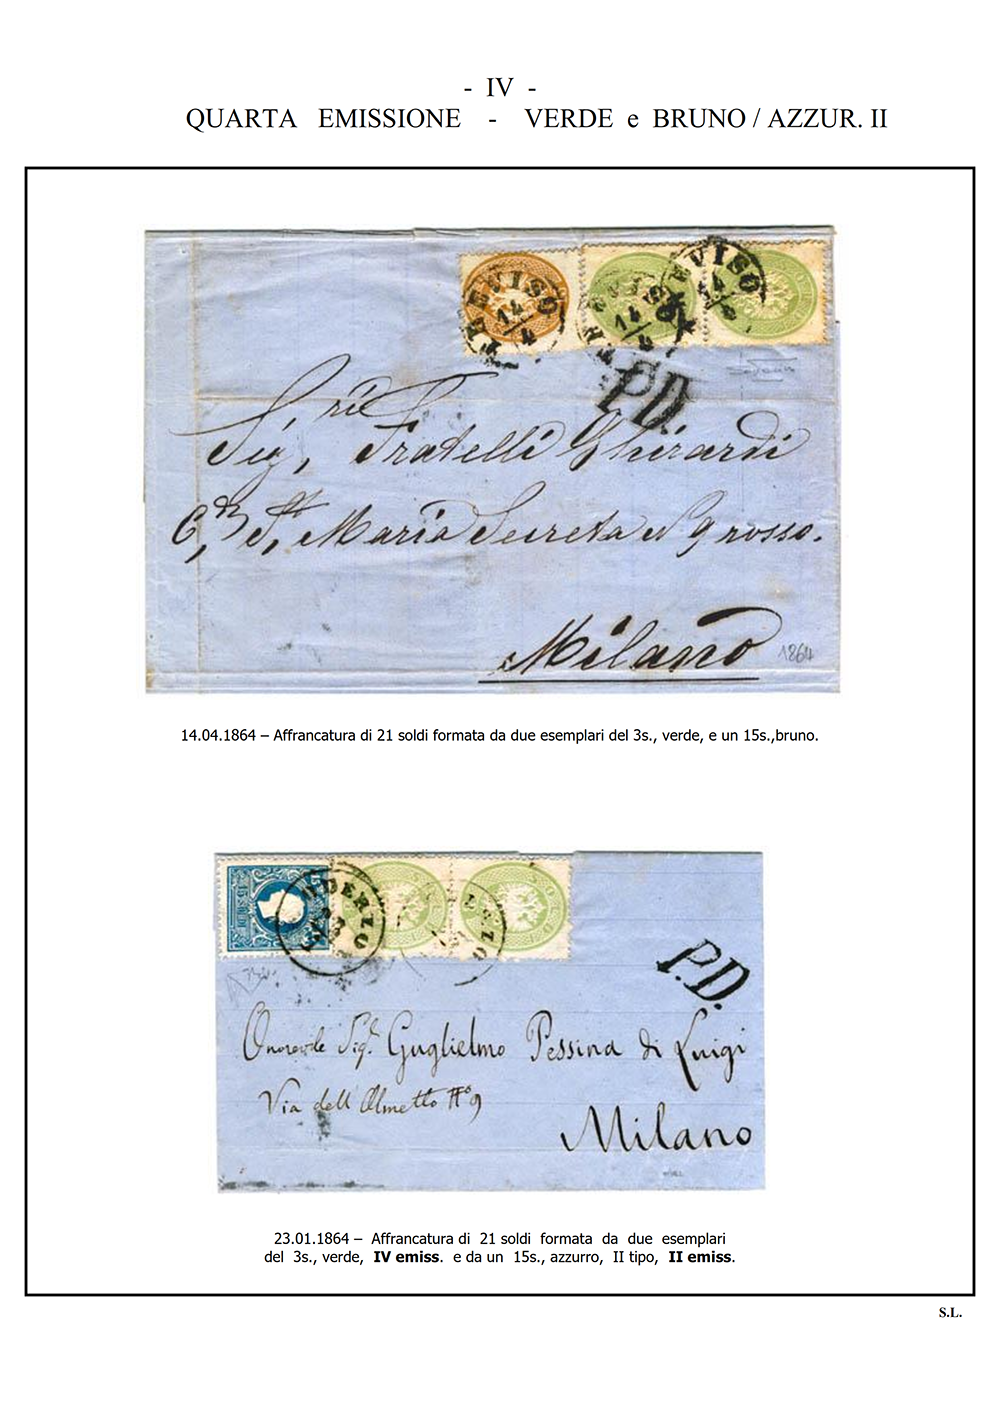 - IV -
QUARTA EMISSIONE - VERDE e BRUNO / AZZUR. II
TREVISO
14/4
TREVISO
14/4
TREVISO
14/4
P.D.
Sigri Fratelli Ghirardi
Sta Maria Secreta
Milano
1864
14.04.1864 – Affrancatura di 21 soldi formata da due esemplari del 3s., verde, e un 15s.,bruno.
ODERZO
P.D.
Onorevole Sigr. Guglielmo Pessina di Luigi
Via dell'Olmetto No 9
Milano
23.01.1864 – Affrancatura di 21 soldi formata da due esemplari
del 3s., verde, IV emiss. e da un 15s., azzurro, II tipo, II emiss.
S.L.